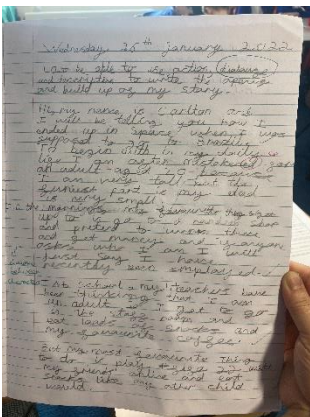 Wednesday 26th january 2022
to be able to use action, dialouge
and description to write the opening
and build up of my story.
Hi, my name is Carlton and
I will be telling you how I
ended up in space when I was
supposed to go to
To begin with in my daily
life I am often mistaked for
an adult aged 20 because
I am very tall but the
funniest part is my dad
is very small.
In the mornings my favourite thing
to go to a shop
and pretend to work there
and get money and if anyone
asks who I am I will
just say I have
recently been employed.
At school my teachers have
been thinking that I am
an adult I get to go
in the staff room and
eat loads of snacks and
my favourite coffee.
But my most favourite thing
to do is play fifa 22 with
my friend and just
like any other child
world